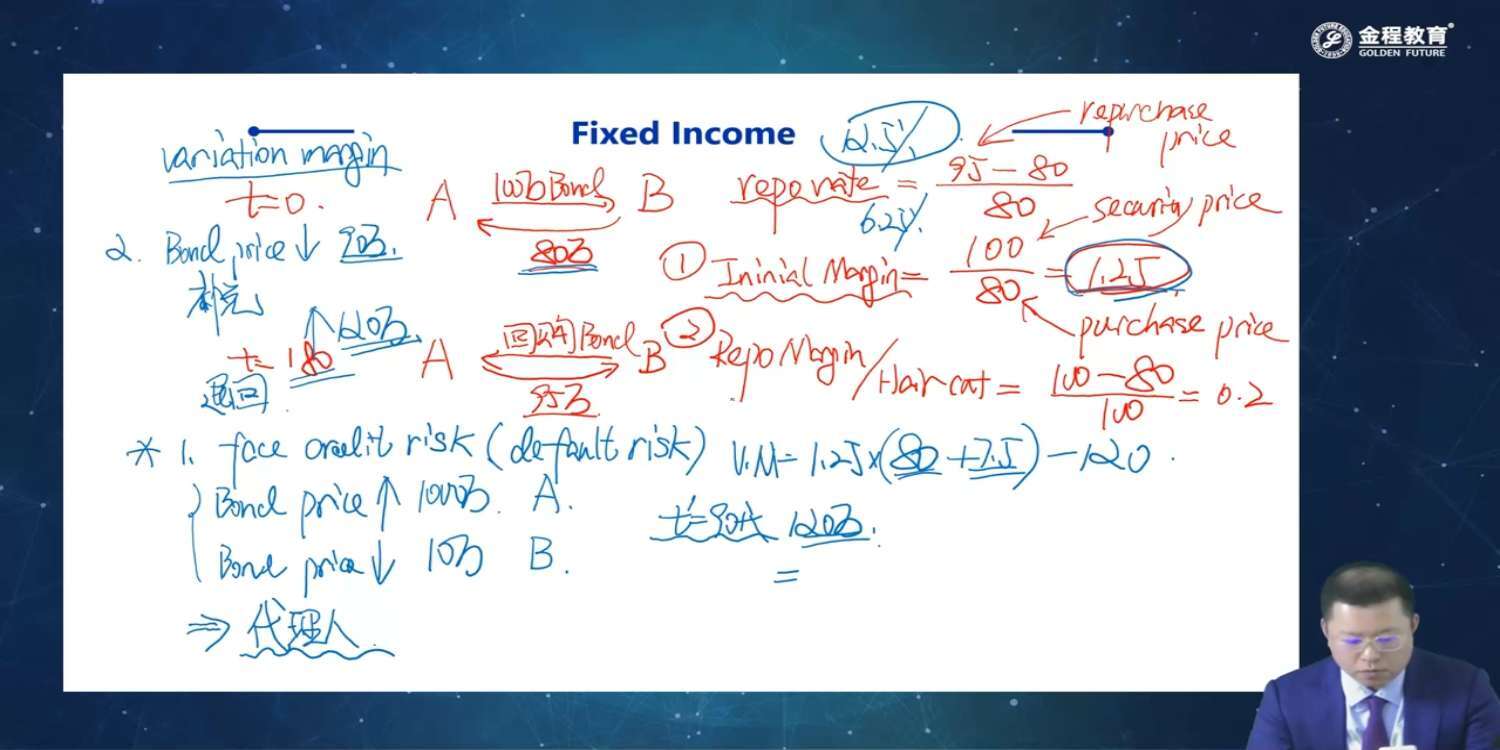 金程教育
GOLDEN FUTURE
Fixed Income
12.5%
repurchase price
variation margin
t=0.
A 100万Bond B
80万
repo rate = 95-80 / 80
6.25%
security price
2. Bond price ↓ 90万.
补充
① Ininial Margin = 100 / 80 = 1.25
purchase price
↑ 120万.
t=180
退回
A 回购Bond B
95万
② Repo Margin/Hair cat = 100-80 / 100 = 0.2
* 1. face credit risk (default risk)
V.M = 1.25×(80+7.5)-120.
Bond price ↑ 1000万. A.
t=90天 120万.
=
Bond price ↓ 10万 B.
⇒ 代理人.